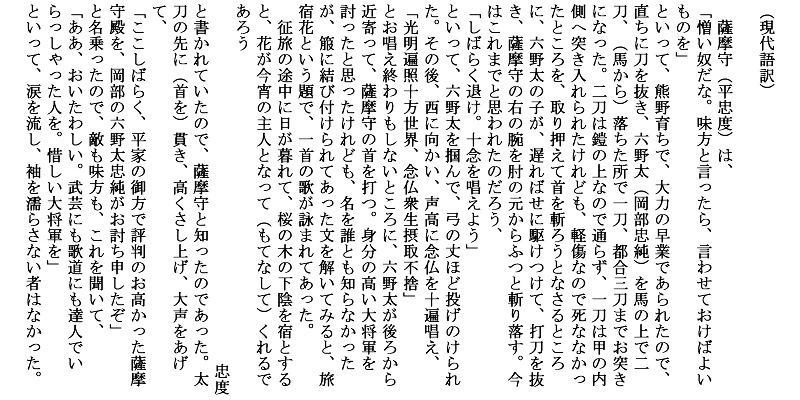 （現代語訳）
薩摩守（平忠度）は、
「憎い奴だな。味方と言ったら、言わせておけばよい
ものを」
といって、熊野育ちで、大力の早業であられたので、
直ちに刀を抜き、六野太（岡部忠純）を馬の上で二
刀、（馬から）落ちた所で一刀、都合三刀までお突き
になった。二刀は鎧の上なので通らず、一刀は甲の内
側へ突き入れられたけれども、軽傷なので死ななかっ
たところを、取り押えて首を斬ろうとなさるところ
に、六野太の子が、遅ればせに駆けつけて、打刀を抜
き、薩摩守の右の腕を肘の元からふつと斬り落す。今
はこれまでと思われたのだろう、
「しばらく退け。十念を唱えよう」
といって、六野太を掴んで、弓の丈ほど投げのけられ
た。その後、西に向かい、声高に念仏を十遍唱え、
「光明遍照十方世界、念仏衆生摂取不捨」
とお唱え終わりもしないところに、六野太が後ろから
近寄って、薩摩守の首を打つ。身分の高い大将軍を
討ったと思ったけれども、名を誰とも知らなかった
が、箙に結び付けられてあった文を解いてみると、旅
宿花という題で、一首の歌が詠まれてあった。
征旅の途中に日が暮れて、桜の木の下陰を宿とする
と、花が今宵の主人となって（もてなして）くれるで
あろう
忠度
と書かれていたので、薩摩守と知ったのであった。太
刀の先に（首を）貫き、高くさし上げ、大声をあげ
て、
「ここしばらく、平家の御方で評判のお高かった薩摩
守殿を、岡部の六野太忠純がお討ち申したぞ」
と名乗ったので、敵も味方も、これを聞いて、
「ああ、おいたわしい。武芸にも歌道にも達人でい
らっしゃった人を。惜しい大将軍を」
といって、涙を流し、袖を濡らさない者はなかった。